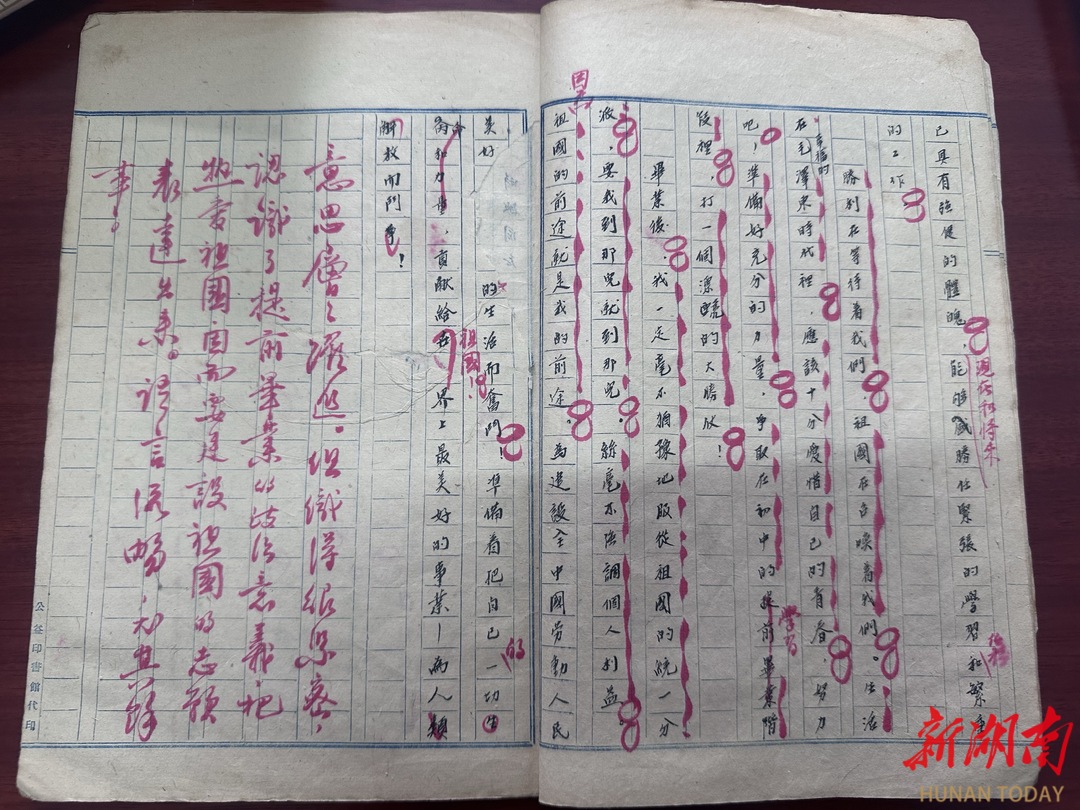 已具有強健的體魄，能够勝任緊張的學習和繁重
的工作。
勝利在等待着我們，祖國在召喚着我們。生活
幸福的
在毛澤東時代裡，應該十分愛惜自己的青春，努力
吧！準備好充分的力量，爭取在初中的提前畢業階
學習
段裡，打一個漂亮的大勝仗！
畢業後，我一定毫不猶豫地服從祖國的統一分
派，要我到那兒就到那兒。絲毫不強調個人利益
因為
祖國的前途就是我的前途。為建設全中國勞動人民
美好的生活而奮鬥！準備着把自己一切生
的
祖國！
命和力量，貢獻給世界上最美好的事業—為人類
解放而鬥爭！
意思層々漸進。組織得很密，
認識了提前畢業的政治意義，把
熱愛祖國因而要建設祖國的志願
表達出來。語言流暢，尤其餘
事。
公益印書館代印
新湖南
HUNAN TODAY